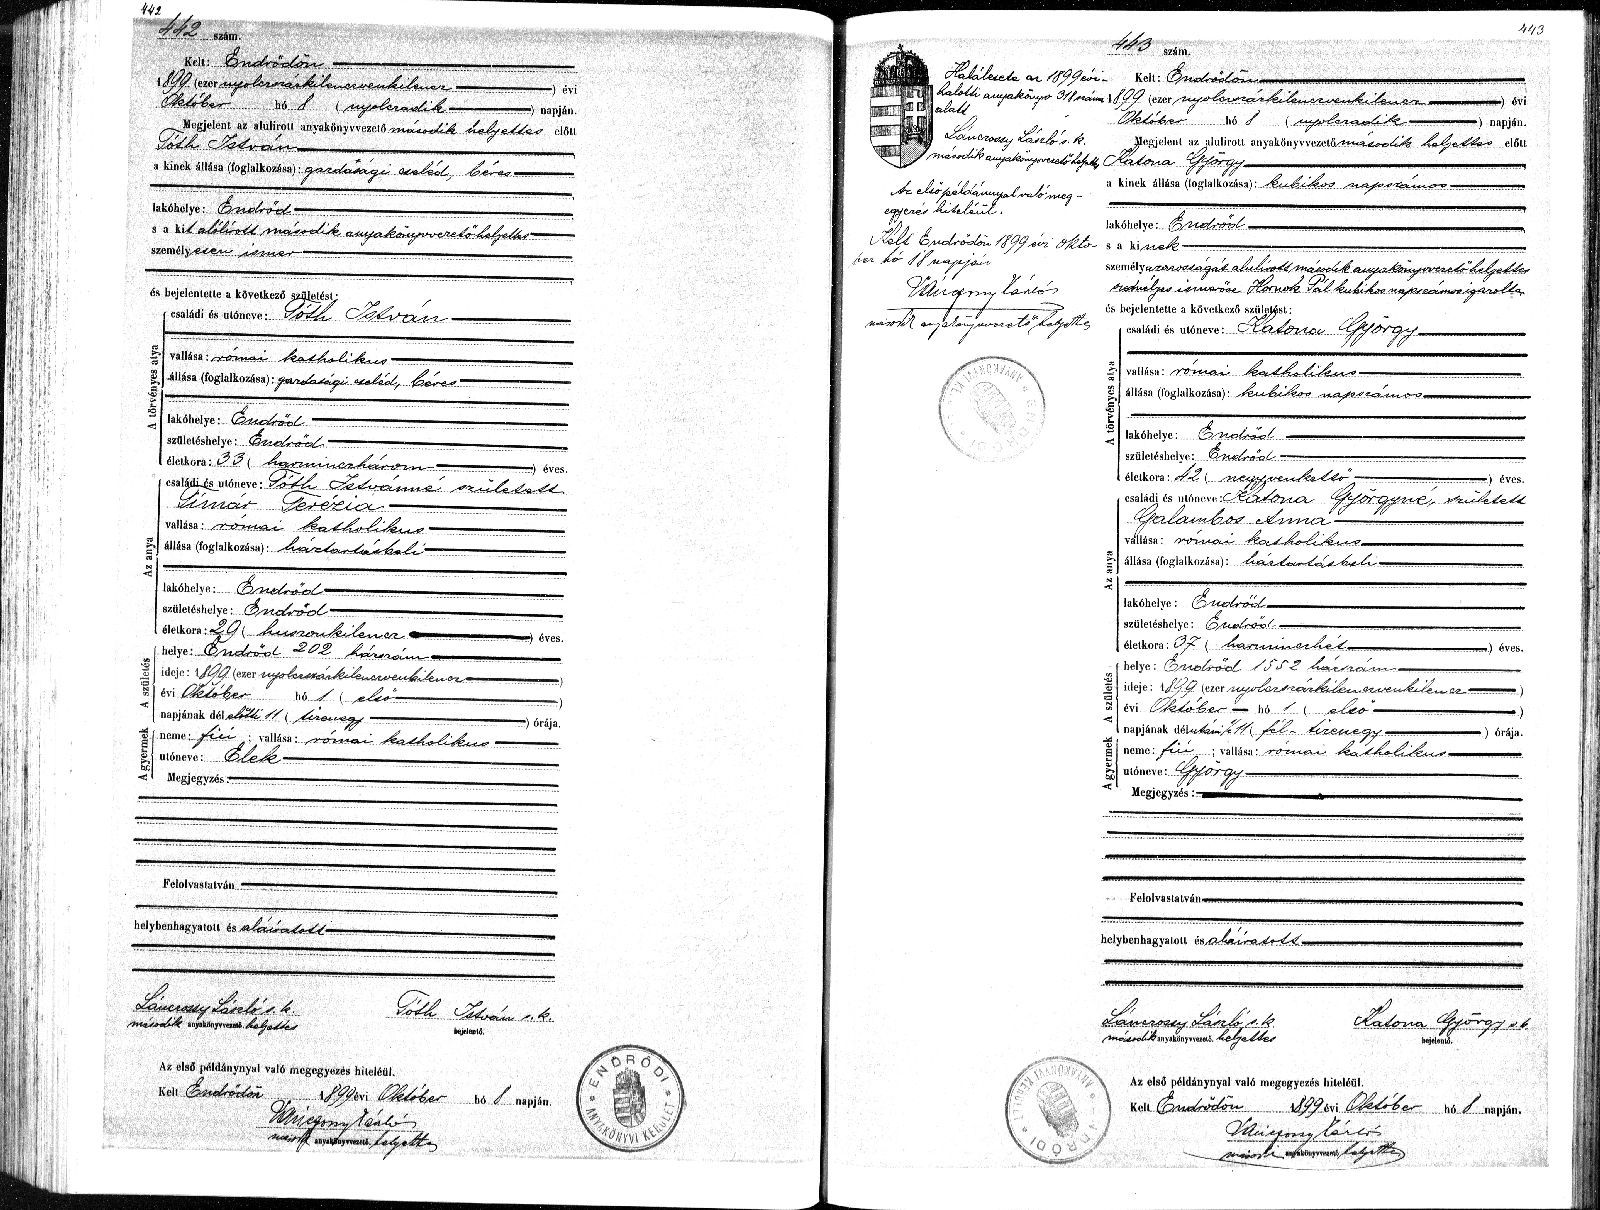 442
442 szám.
Kelt: Endrődön
1899 (ezer nyolczszázkilenczvenkilencz) évi
Október hó 8 (nyolczadik) napján.
Megjelent az alulirott anyakönyvvezető második helyettes előtt
Tóth István
a kinek állása (foglalkozása): gazdasági cseléd, béres
lakóhelye: Endrőd
s a kit alólirott második anyakönyvvezető helyettes
személyesen ismer
és bejelentette a következő születést:
A törvényes atya
családi és utóneve: Tóth István
vallása: római katholikus
állása (foglalkozása): gazdasági cseléd, béres
lakóhelye: Endrőd
születéshelye: Endrőd
életkora: 33 (harminczhárom) éves.
Az anya
családi és utóneve: Tóth Istvánné született
Tímár Terézia
vallása: római katholikus
állása (foglalkozása): háztartásbeli
lakóhelye: Endrőd
születéshelye: Endrőd
életkora: 29 (huszonkilencz) éves.
A születés
helye: Endrőd 202 házszám
ideje: 1899 (ezer nyolczszázkilenczvenkilencz)
évi Október hó 1 (első)
napjának délelőtti 11 (tizenegy) órája.
A gyermek
neme: fiú ; vallása: római katholikus
utóneve: Elek
Megjegyzés:
Felolvastatván
helybenhagyatott és aláiratott
Lánczossy László s. k.
második anyakönyvvezető helyettes
Tóth István s. k.
bejelentő.
Az első példánynyal való megegyezés hiteléül.
Kelt Endrődön 1899 évi Október hó 8 napján.
anyakönyvvezető, helyettes
ENDRŐDI
ANYAKÖNYVI KERÜLET
443
Halálesete az 1899 évi
halotti anyakönyv 318 szám
alatt
Lánczossy László s. k.
második anyakönyvvezető helyettes
Az első példánnyal való meg-
egyezés hiteléül.
Kelt Endrődön 1899 évi Októ-
ber hó 18 napján
anyakönyvvezető, helyettes
443 szám.
Kelt: Endrődön
1899 (ezer nyolczszázkilenczvenkilencz) évi
Október hó 8 (nyolczadik) napján.
Megjelent az alulirott anyakönyvvezető második helyettes előtt
Katona György
a kinek állása (foglalkozása): kubikos napszámos
lakóhelye: Endrőd
s a kinek
személyazonosságát alulirott második anyakönyvvezető helyettes
személyes ismerőse Hornok Pál kubikos napszámos igazolta
és bejelentette a következő születést:
A törvényes atya
családi és utóneve: Katona György
vallása: római katholikus
állása (foglalkozása): kubikos napszámos
lakóhelye: Endrőd
születéshelye: Endrőd
életkora: 42 (negyvenkettő) éves.
Az anya
családi és utóneve: Katona Györgyné, született
Galambos Anna
vallása: római katholikus
állása (foglalkozása): háztartásbeli
lakóhelye: Endrőd
születéshelye: Endrőd
életkora: 37 (harminczhét) éves.
A születés
helye: Endrőd 1552 házszám
ideje: 1899 (ezer nyolczszázkilenczvenkilencz)
évi Október hó 1 (első)
napjának délutáni ½11 (fél-tizenegy) órája.
A gyermek
neme: fiú ; vallása: római katholikus
utóneve: György
Megjegyzés:
Felolvastatván
helybenhagyatott és aláiratott
Lánczossy László s. k.
második anyakönyvvezető. helyettes
Katona György s. k.
bejelentő.
Az első példánynyal való megegyezés hiteléül.
Kelt Endrődön 1899 évi Október hó 8 napján.
anyakönyvvezető, helyettes